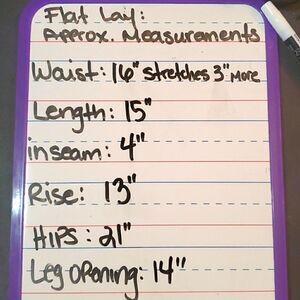 Flat Lay:
Approx. Measurements
Waist: 16" stretches 3" more
Length: 15"
inseam: 4"
Rise: 13"
HIPS: 21"
Leg opening: 14"